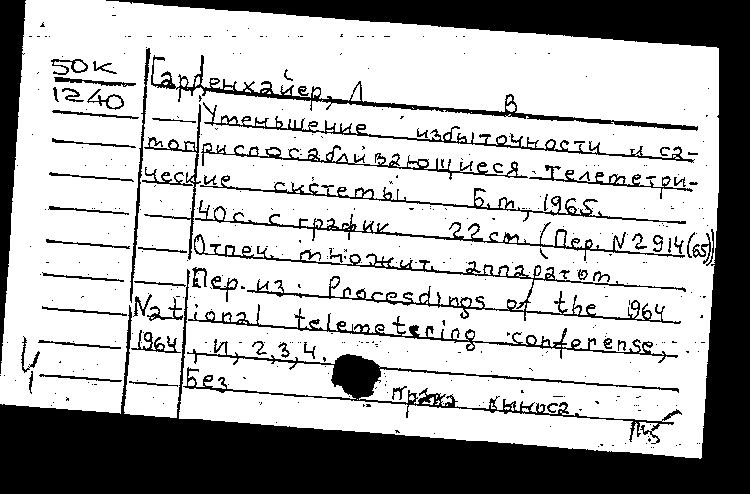 50К
1240
Гарденхайер, Л В
Уменьшение избыточности и са-
моприспосабливающиеся телеметри-
ческие системы. Б.м., 1965.
40с. с график. 22 см. (Пер. N2914(65))
Отпеч. множит. аппаратом.
Пер. из: Proceedings of the 1964
National telemetering conferense,
1964, И, 2,3,4.
Без права выноса.